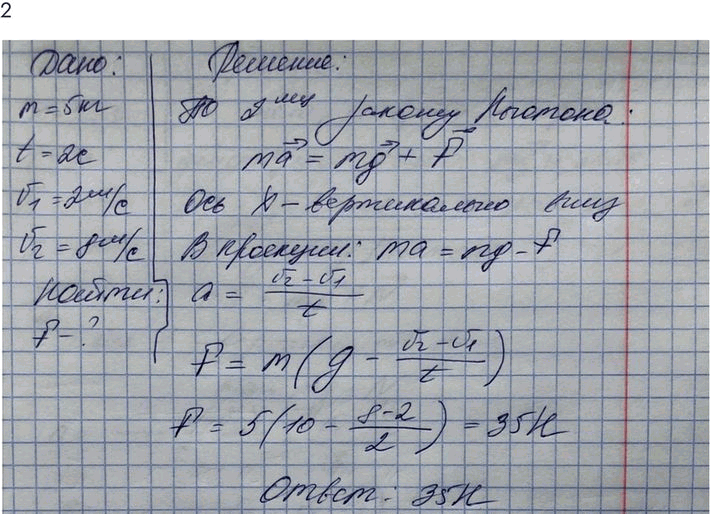 2
Дано:
m = 5кг
t = 2с
v₁ = 2м/с
v₂ = 8м/с
Найти:
F - ?
Решение:
По 2му закону Ньютона:
ma⃗ = mg⃗ + F⃗
Ось X - вертикально вниз
В проекции: ma = mg - F
a = (v₂ - v₁)/t
F = m(g - (v₂ - v₁)/t)
F = 5(10 - (8-2)/2) = 35Н
Ответ: 35Н